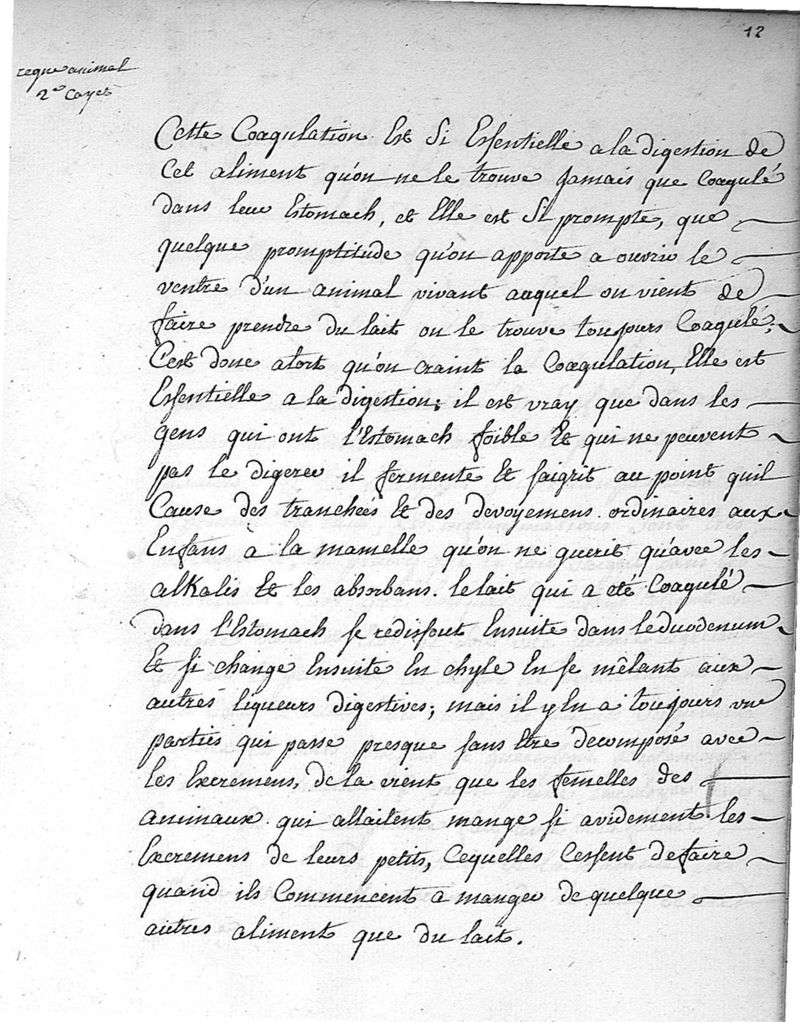 12
regne animal
2e Cayer
Cette Coagulation Est Si Essentielle a la digestion de
Cet aliment qu'on ne le trouve Jamais que Coagulé
dans leur Estomach, et Elle est Si prompte, que
quelque promptitude qu'on apporte a ouvrir le
ventre d'un animal vivant auquel on vient de
faire prendre du lait on le trouve toujours Coagulé;
C'est donc atort qu'on craint la Coagulation, Elle est
Essentielle a la digestion; il est vray que dans les
gens qui ont l'Estomach foible Et qui ne peuvent
pas le digerer il fermente Et saigrit au point quil
Cause des tranchées Et des devoyemens ordinaires aux
Enfans à la mamelle qu'on ne guerit qu'avec les
alkalis Et les absorbans. le lait qui a eté Coagulé
dans l'Estomach se redissout Ensuite dans le duodenum
Et si change Ensuite En chyle En se mêlant aux
autres liqueurs digestives; mais il y En a toujours une
parties qui passe presque sans Etre decomposé avec
les Excremens, de la vient que les femelles des
animaux qui allaitent mange si avidement les
Excremens de leurs petits, Cequelles Cessent de faire
quand ils Commencent a manger de quelque
autres aliment que du lait.